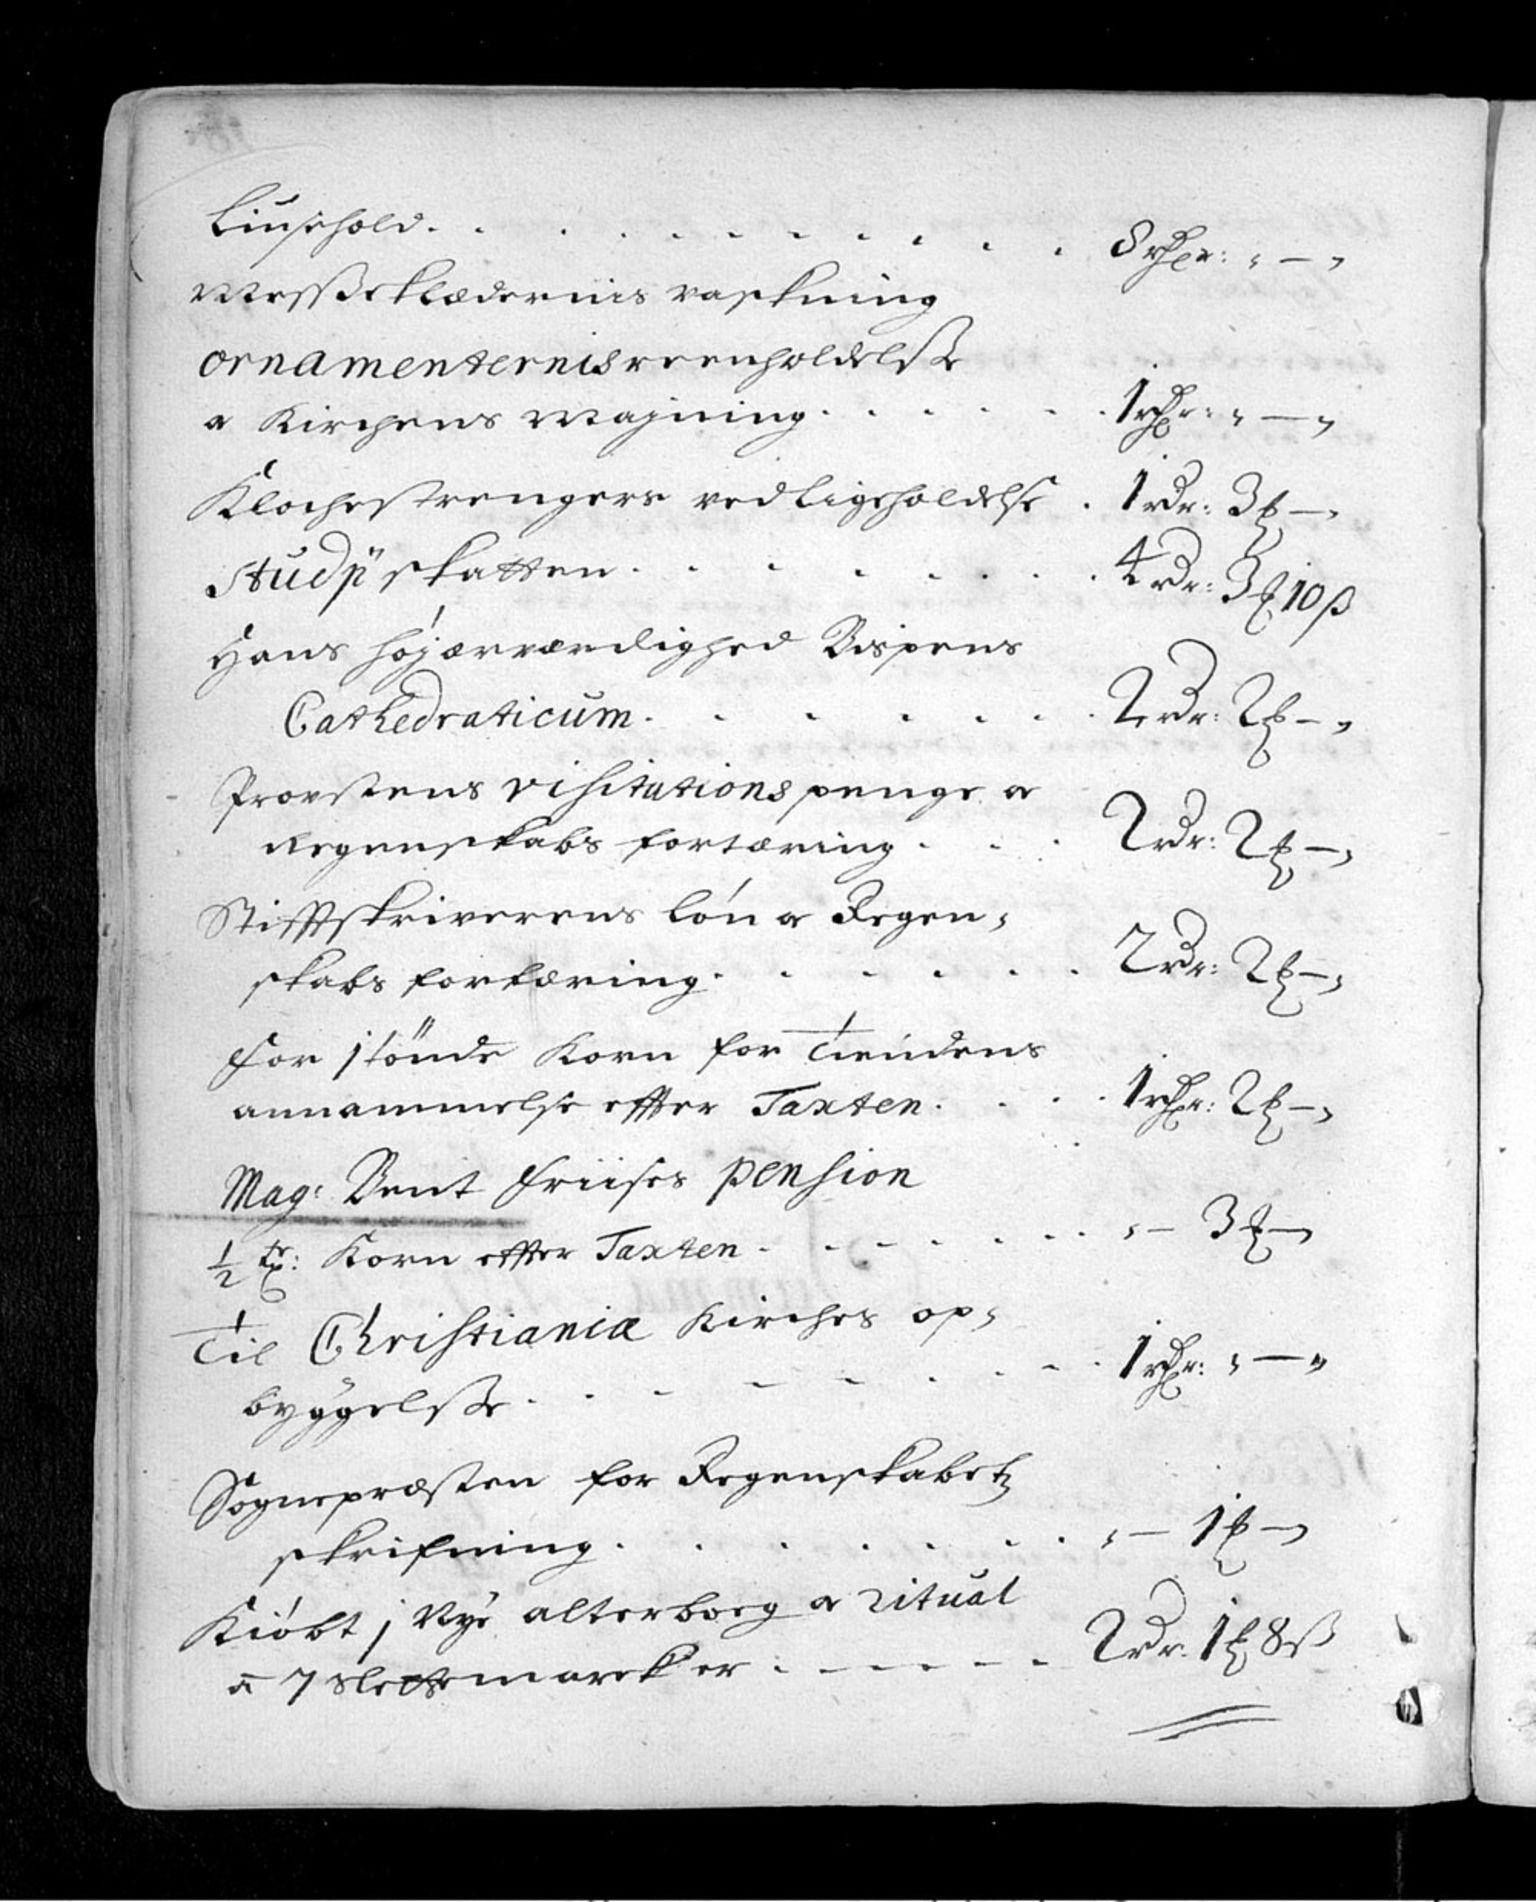 Liusehold. . . . . . . . . . . 8 rdlr: " — "
Messeklædernis vaskning
ornamenternis reenholdelsse
oc Kirchens Majning. . . . . . 1 rdlr: " — "
Klochestrengers vedligeholdelse . 1 rdr: 3 ₰ — "
Studÿ skatten. . . . . . . . 4 rdr: 3 ₰ 10 ß
Hans højærværdighed Bispens
Cathedraticum. . . . . . . 2 rdr: 2 ₰ — "
Provstens visitations penge oc
Regenskabs fortæring . . . 2 rdr: 2 ₰ — "
Stifftskriverens lón oc Regen,
skabs fortæring. . . . . . . 2 rdr: 2 ₰ — "
For j tönde Korn for Tiendens
annammelse effter Taxten. . . . 1 rdlr: 2 ₰ — "
Mag: Bent Friises Pension
½ tr: Korn effter Taxten. . . . . . . " — 3 ₰ — "
Til Christianiæ Kirches op,
byggelsse. . . . . . . . . . 1 rdlr: " — "
Sognepræsten for Regenskabetz
skrifning. . . . . . . " — 1 ₰ — "
Kióbt j Nye alterboeg oc Ritual
a 7 slette marck er . . . . . 2 rdr. 1 ₰ 8 ß